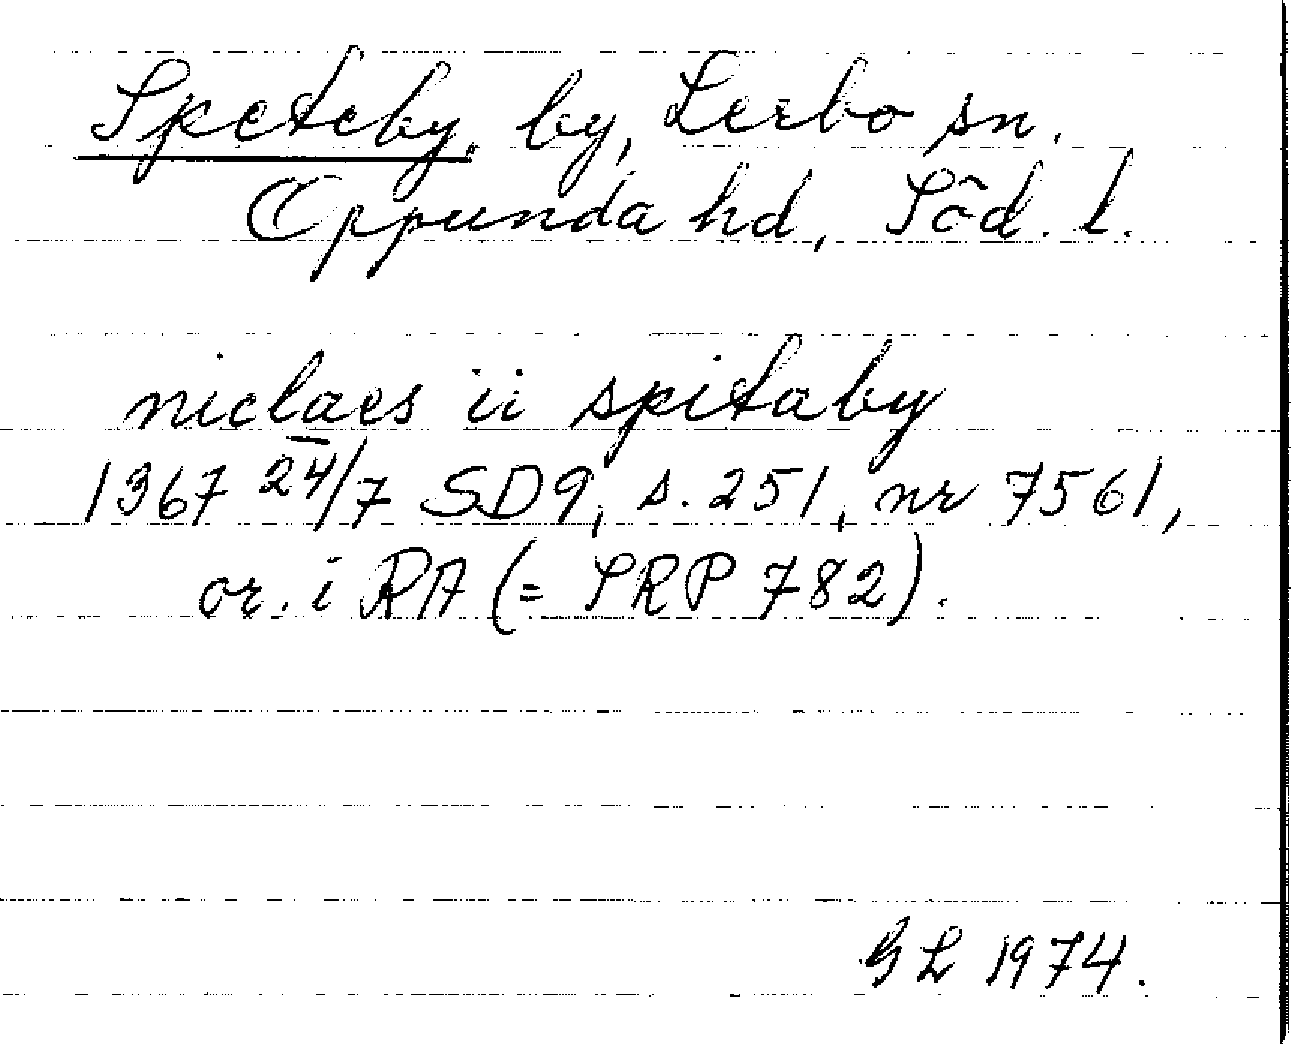 Speteby, by, Lerbo sn.
Oppunda hd, Söd. l.
niclaes ii spitaby
1367 24/7 SD9, s. 251, nr 7561,
or. i RA (= SRP 782).
GL 1974.